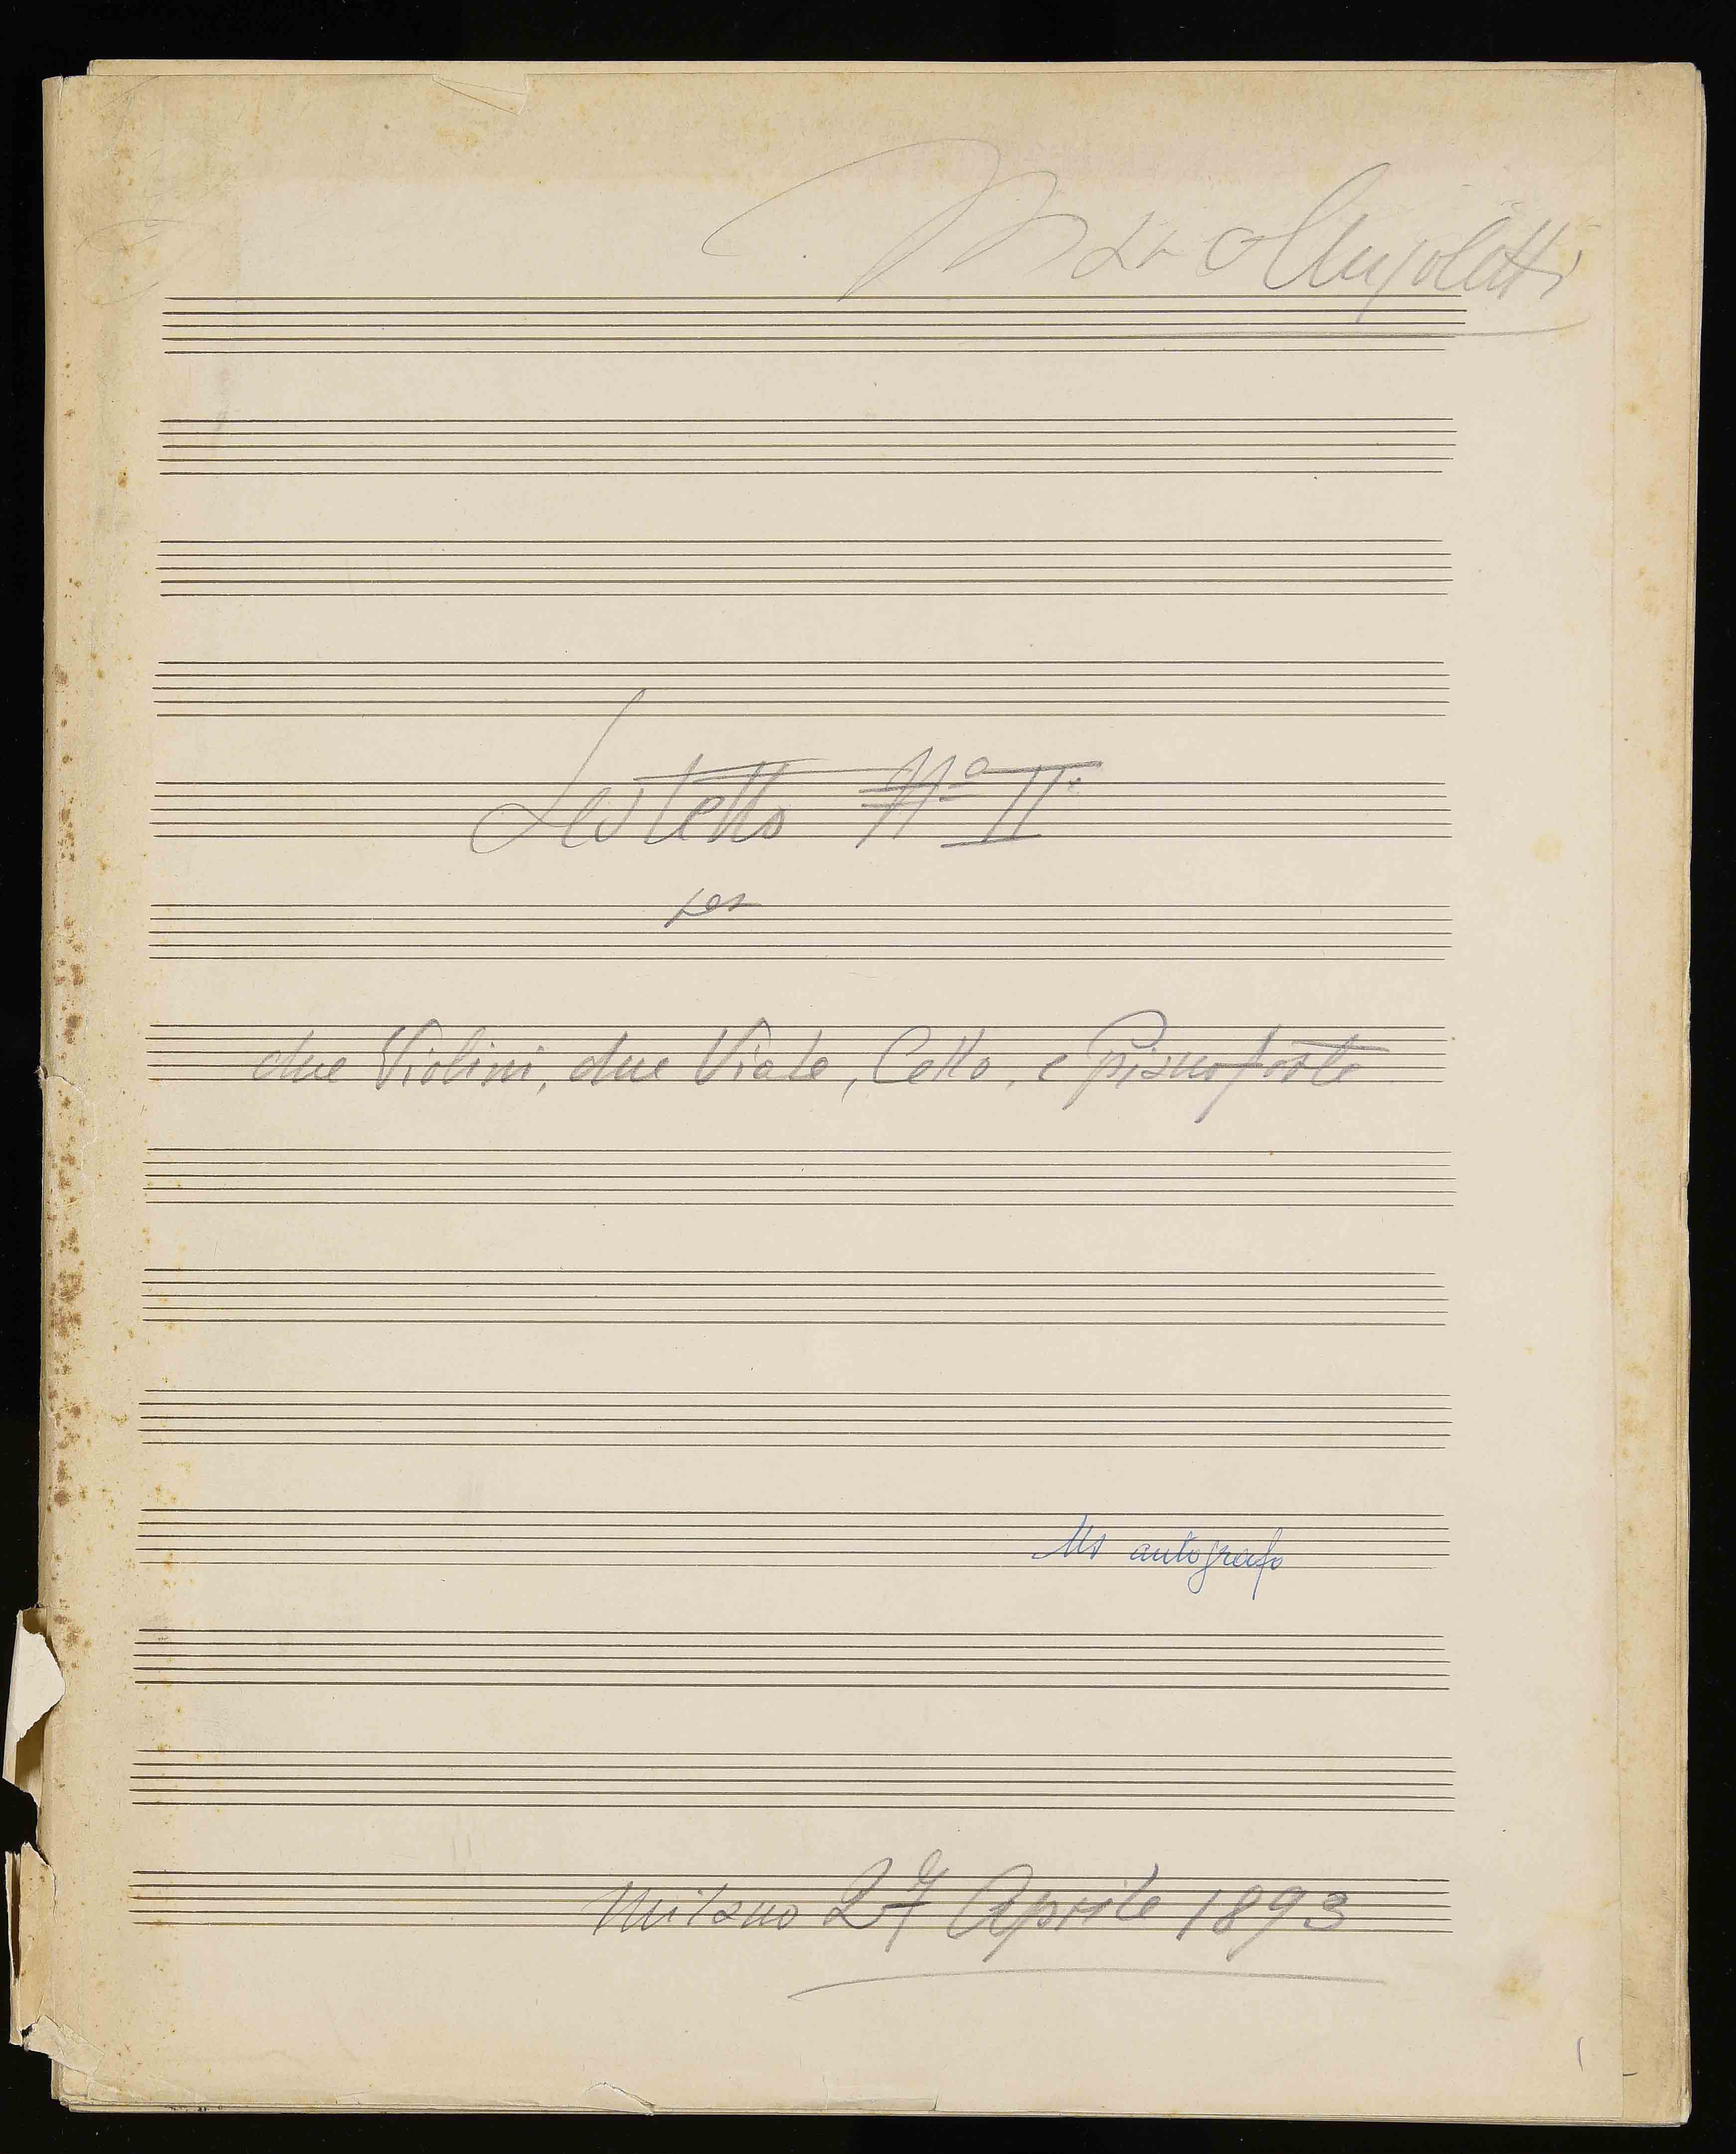 Angeletti
Sestetto Nº II:
per
due Violini, due Viole, Cello, e Pianoforte
Ms autografo
Milano 27 Aprile 1893